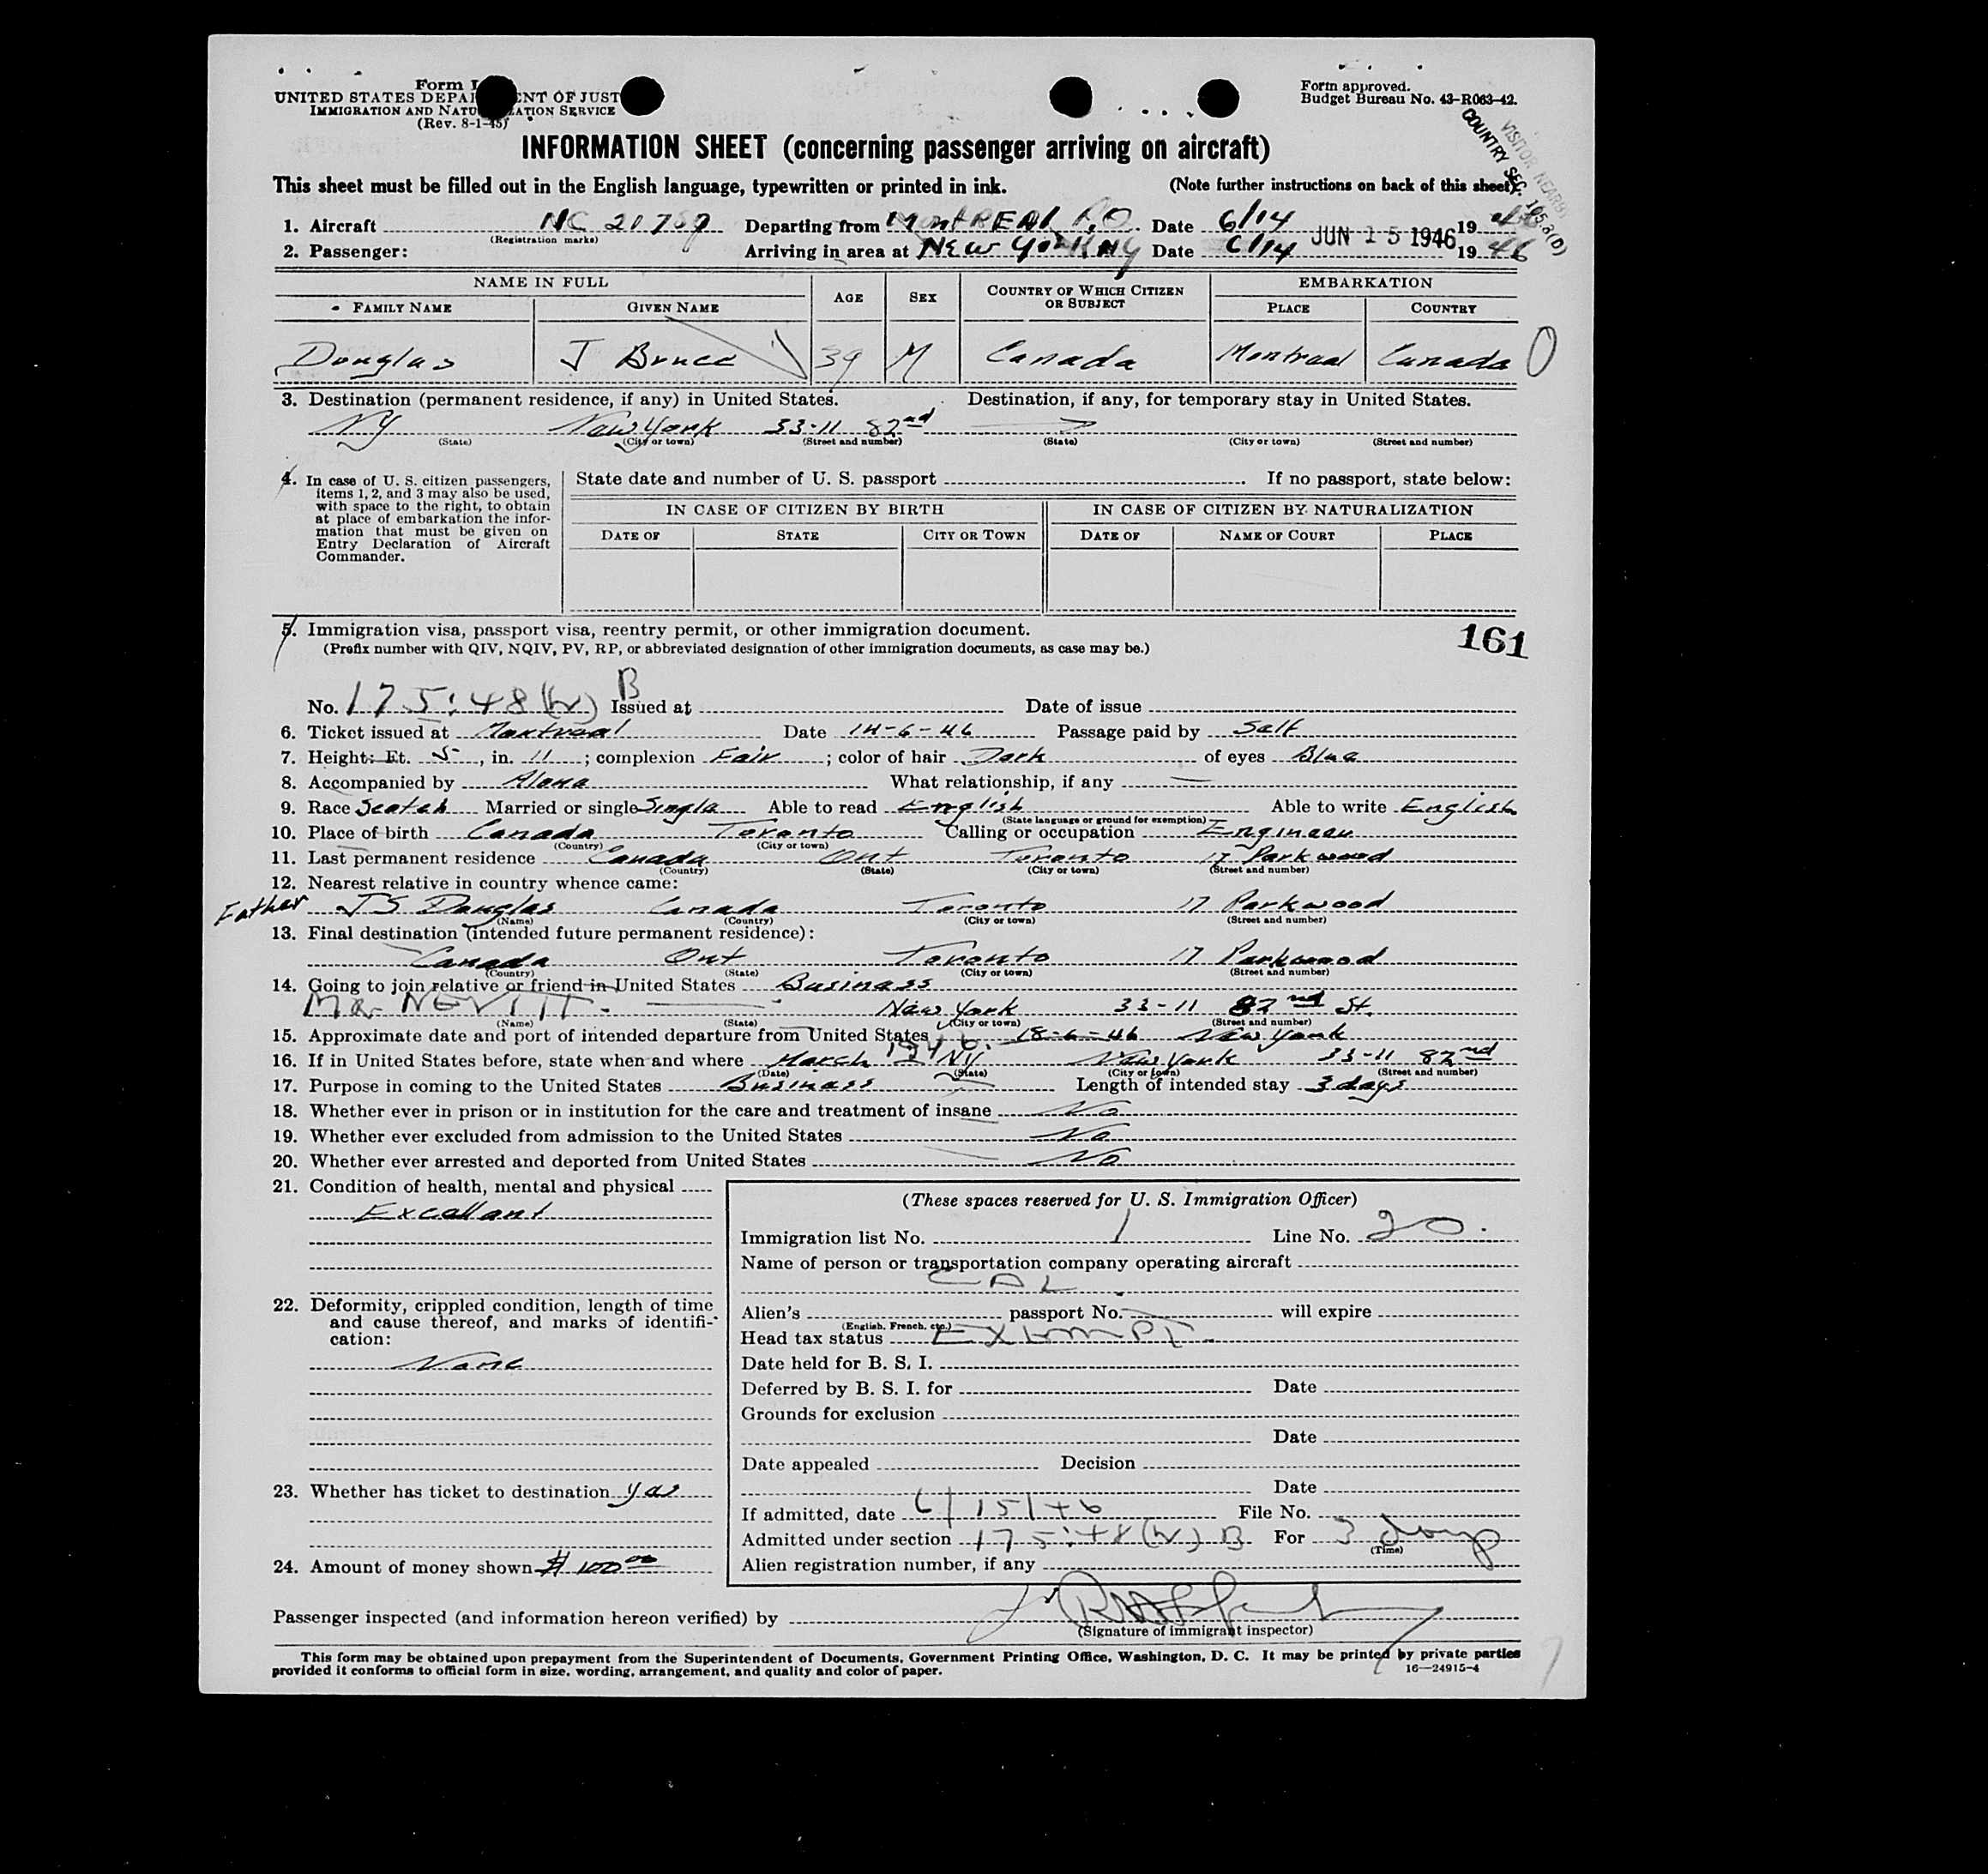 Form I
UNITED STATES DEPA NT OF JUST
IMMIGRATION AND NATU ZATION SERVICE
(Rev. 8-1-45)
Form approved.
Budget Bureau No. 43-R063-42.
VISITOR NEARBY
COUNTRY SEC. 105.3(D)
INFORMATION SHEET (concerning passenger arriving on aircraft)
This sheet must be filled out in the English language, typewritten or printed in ink. (Note further instructions on back of this sheet)
1. Aircraft NC 21789 Departing from MontREAL P.Q. Date 6/14 19 46
(Registration marks)
2. Passenger: Arriving in area at New York NY Date 6/14 JUN 15 1946 19 46
NAME IN FULL AGE SEX COUNTRY OF WHICH CITIZEN OR SUBJECT EMBARKATION
FAMILY NAME GIVEN NAME PLACE COUNTRY
Douglas J Bruce 39 M Canada Montreal Canada
3. Destination (permanent residence, if any) in United States. Destination, if any, for temporary stay in United States.
NY New York 33-11 82nd
(State) (City or town) (Street and number) (State) (City or town) (Street and number)
4. In case of U. S. citizen passengers, items 1, 2, and 3 may also be used, with space to the right, to obtain at place of embarkation the information that must be given on Entry Declaration of Aircraft Commander.
State date and number of U. S. passport If no passport, state below:
IN CASE OF CITIZEN BY BIRTH IN CASE OF CITIZEN BY NATURALIZATION
DATE OF STATE CITY OR TOWN DATE OF NAME OF COURT PLACE
5. Immigration visa, passport visa, reentry permit, or other immigration document. 161
(Prefix number with QIV, NQIV, PV, RP, or abbreviated designation of other immigration documents, as case may be.)
No. 175:48(W) B Issued at Date of issue
6. Ticket issued at Montreal Date 14-6-46 Passage paid by Self
7. Height: Ft. 5, in. 11; complexion Fair; color of hair Dark of eyes Blue
8. Accompanied by Alone What relationship, if any —
9. Race Scotch Married or single Single Able to read English Able to write English
(State language or ground for exemption)
10. Place of birth Canada Toronto Calling or occupation Engineer
(Country) (City or town)
11. Last permanent residence Canada Ont Toronto 17 Parkwood
(Country) (State) (City or town) (Street and number)
12. Nearest relative in country whence came:
Father J S Douglas Canada Toronto 17 Parkwood
(Name) (Country) (City or town) (Street and number)
13. Final destination (intended future permanent residence):
Canada Ont Toronto 17 Parkwood
(Country) (State) (City or town) (Street and number)
14. Going to join relative or friend in United States Business
Mr NEVITT. New York 33-11 82nd St.
(Name) (State) (City or town) (Street and number)
15. Approximate date and port of intended departure from United States 18-6-46 New York
16. If in United States before, state when and where March 1946. NY New York 33-11 82nd
(Date) (State) (City or town) (Street and number)
17. Purpose in coming to the United States Business Length of intended stay 3 days
18. Whether ever in prison or in institution for the care and treatment of insane No
19. Whether ever excluded from admission to the United States No
20. Whether ever arrested and deported from United States No
21. Condition of health, mental and physical
Excellent
22. Deformity, crippled condition, length of time and cause thereof, and marks of identification:
None
23. Whether has ticket to destination yes
24. Amount of money shown $ 100 00
(These spaces reserved for U. S. Immigration Officer)
Immigration list No. 1 Line No. 20.
Name of person or transportation company operating aircraft
CAL
Alien's passport No. will expire
(English, French, etc.)
Head tax status EXEMPT.
Date held for B. S. I.
Deferred by B. S. I. for Date
Grounds for exclusion
Date
Date appealed Decision
Date
If admitted, date 6/15/46 File No.
Admitted under section 175:48(W) B For 3 days
(Time)
Alien registration number, if any
Passenger inspected (and information hereon verified) by
(Signature of immigrant inspector)
This form may be obtained upon prepayment from the Superintendent of Documents, Government Printing Office, Washington, D. C. It may be printed by private parties
provided it conforms to official form in size, wording, arrangement, and quality and color of paper. 16—24915-4